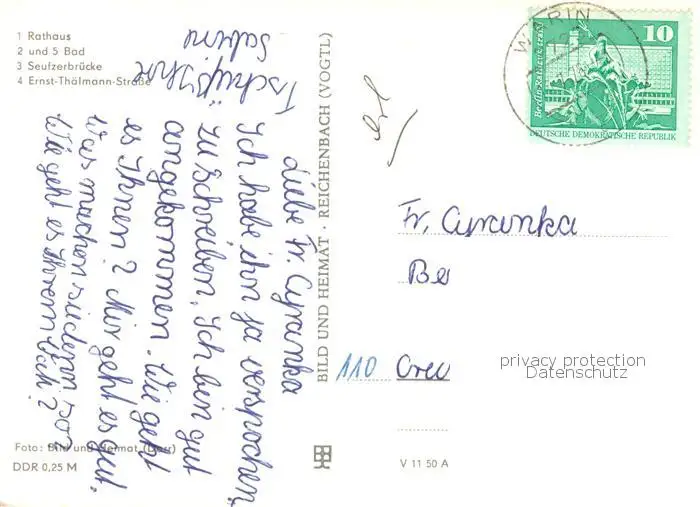 1 Rathaus
2 und 5 Bad
3 Seufzerbrücke
4 Ernst-Thälmann-Straße
Liebe Fr. Cyranka
Ich habe ihn ja versprochen,
zu schreiben. Ich bin gut
angekommen. Wie geht
es Ihnen? Mir geht es gut.
Was machen
Wie geht es Ihrem
Tschüß Ihre
Sabine
BILD UND HEIMAT · REICHENBACH (VOGTL)
WARIN
10
Berlin-Rathausstraße
DEUTSCHE DEMOKRATISCHE REPUBLIK
Fr. Cyranka
Be
110
privacy protection
Datenschutz
Foto: Bild und Heimat
DDR 0,25 M
V 11 50 A